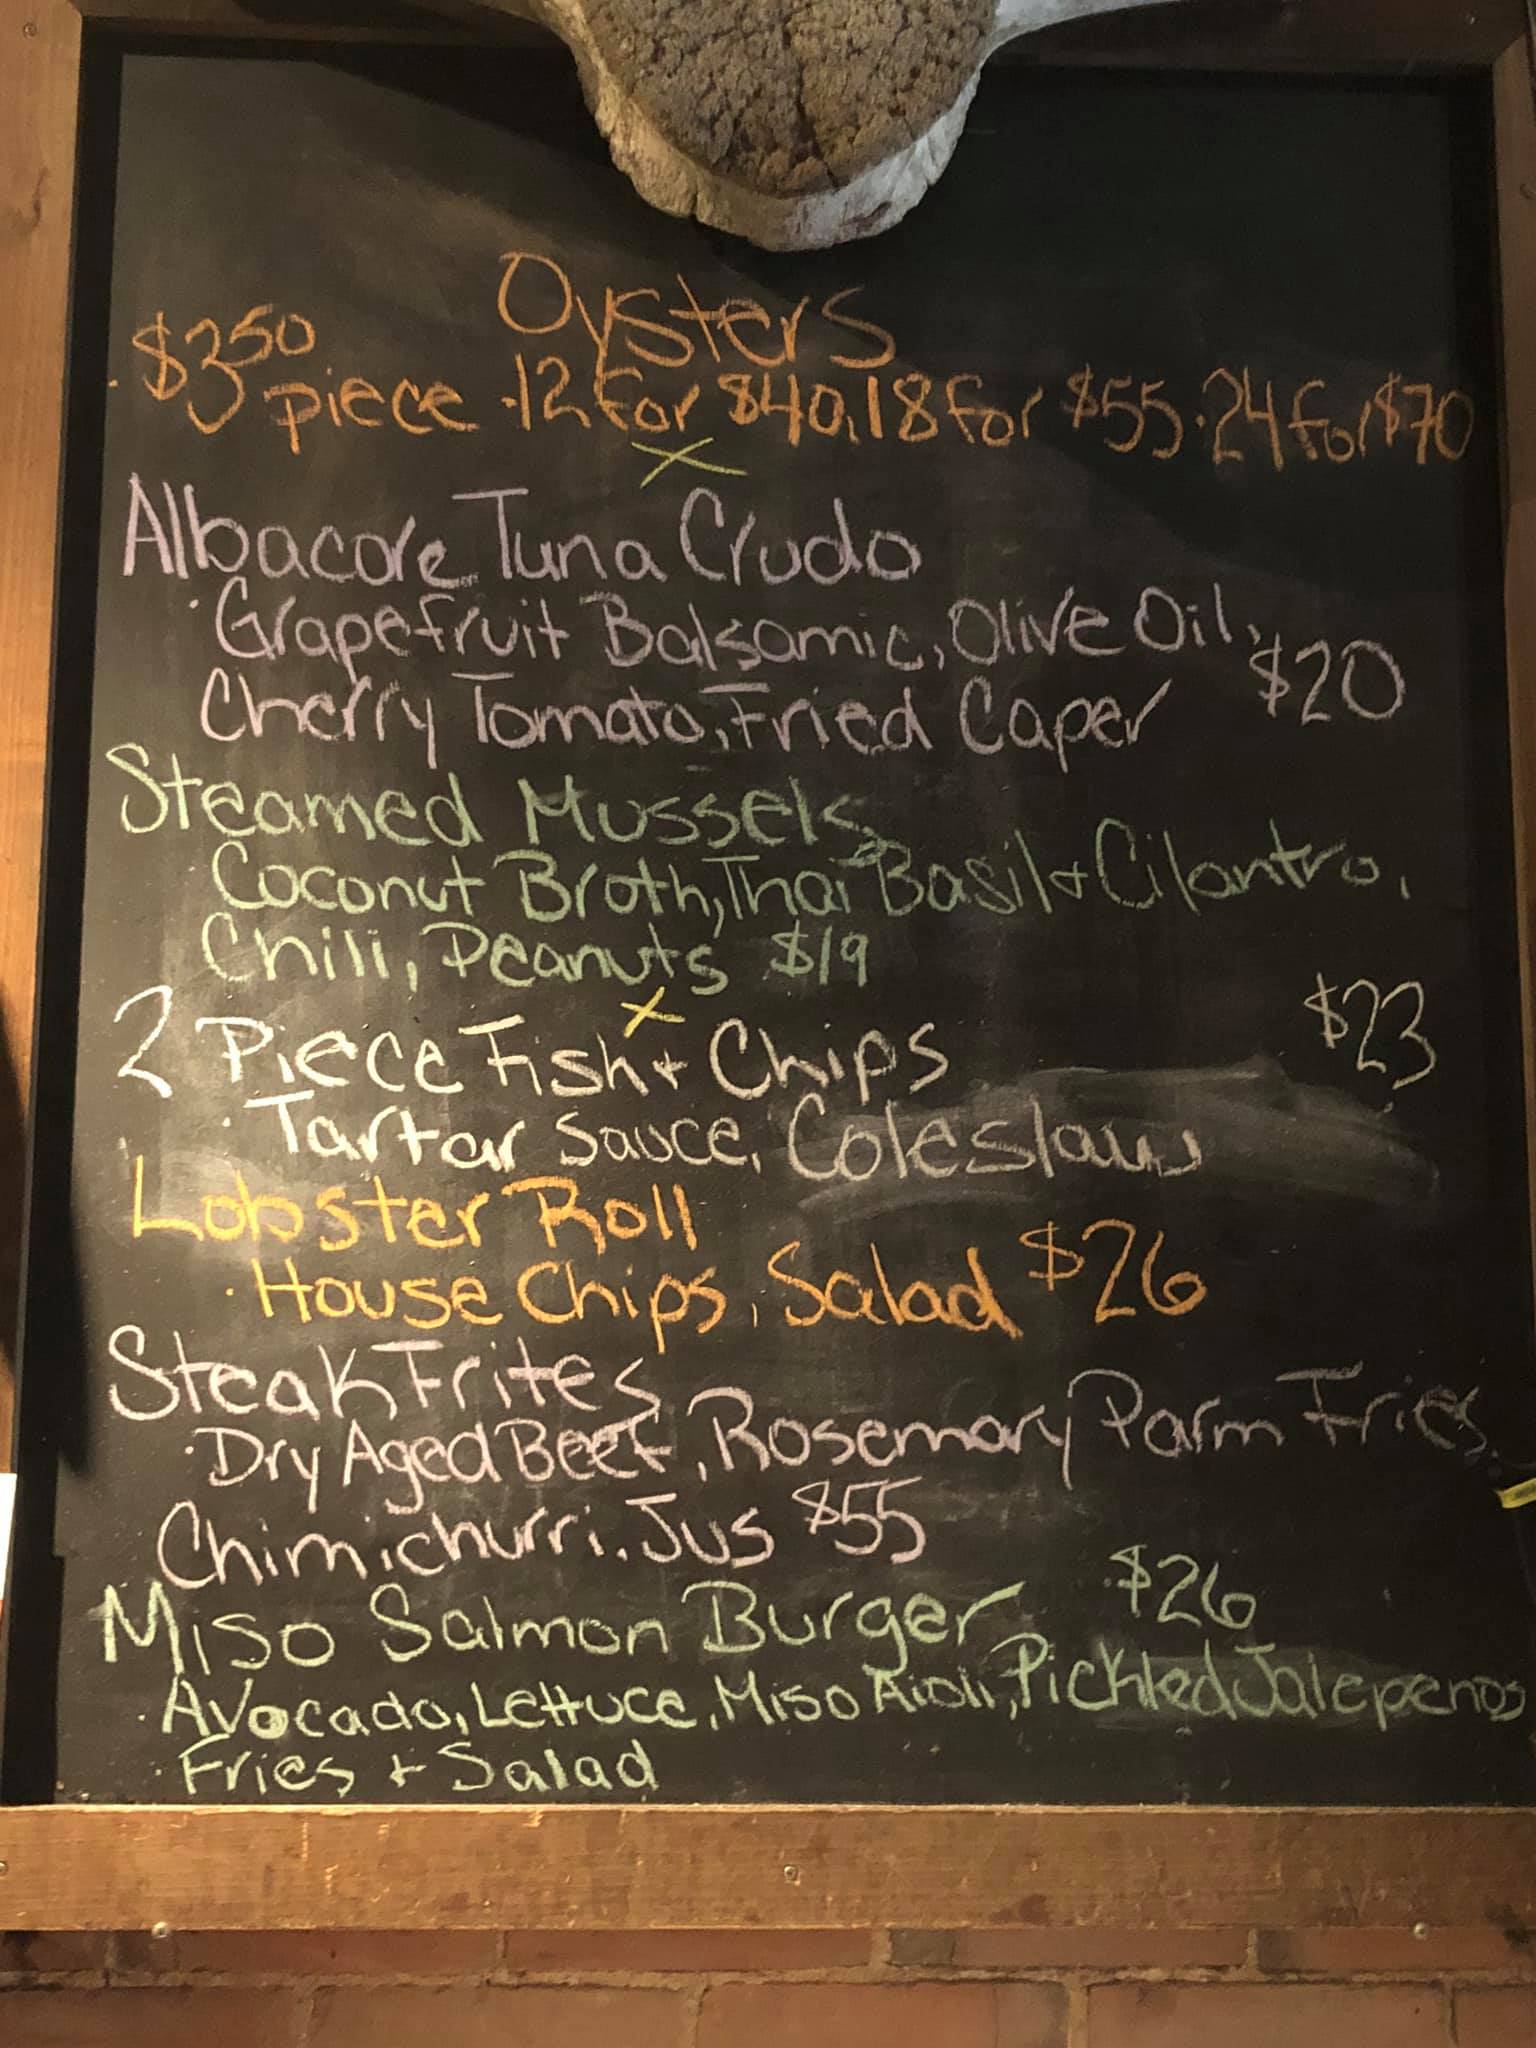 Oysters
$3.50 piece · 12 for $40, 18 for $55 · 24 for $70
Albacore Tuna Crudo
· Grapefruit Balsamic, Olive Oil,
Cherry Tomato, Fried Caper $20
Steamed Mussels
Coconut Broth, Thai Basil + Cilantro,
Chili, Peanuts $19
2 Piece Fish + Chips $23
· Tartar Sauce, Coleslaw
Lobster Roll
· House Chips, Salad $26
Steak Frites
· Dry Aged Beef, Rosemary Parm Fries
Chimichurri, Jus $55
Miso Salmon Burger $26
· Avocado, Lettuce, Miso Aioli, Pickled Jalepenos
· Fries + Salad